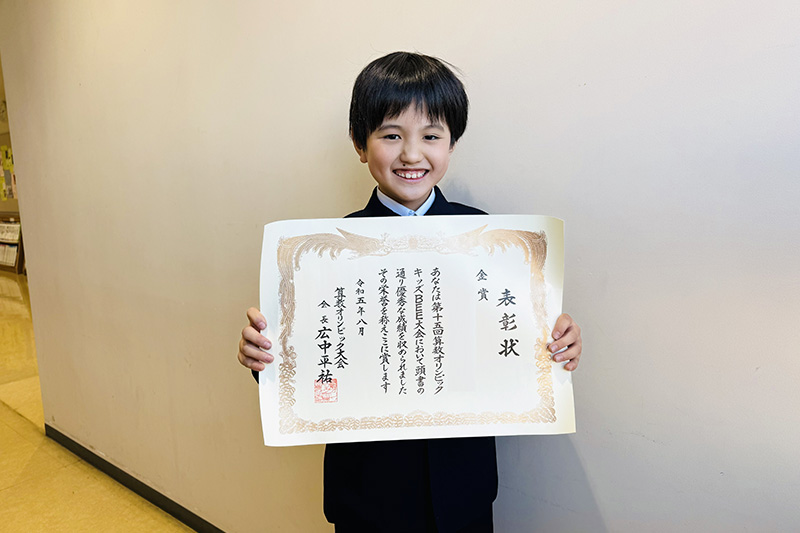 表彰状
金賞
あなたは第十五回算数オリンピック
キッズBEE大会において頭書の
通り優秀な成績を収められました
その栄誉を称えここに賞します
令和五年八月
算数オリンピック大会
会長 広中平祐